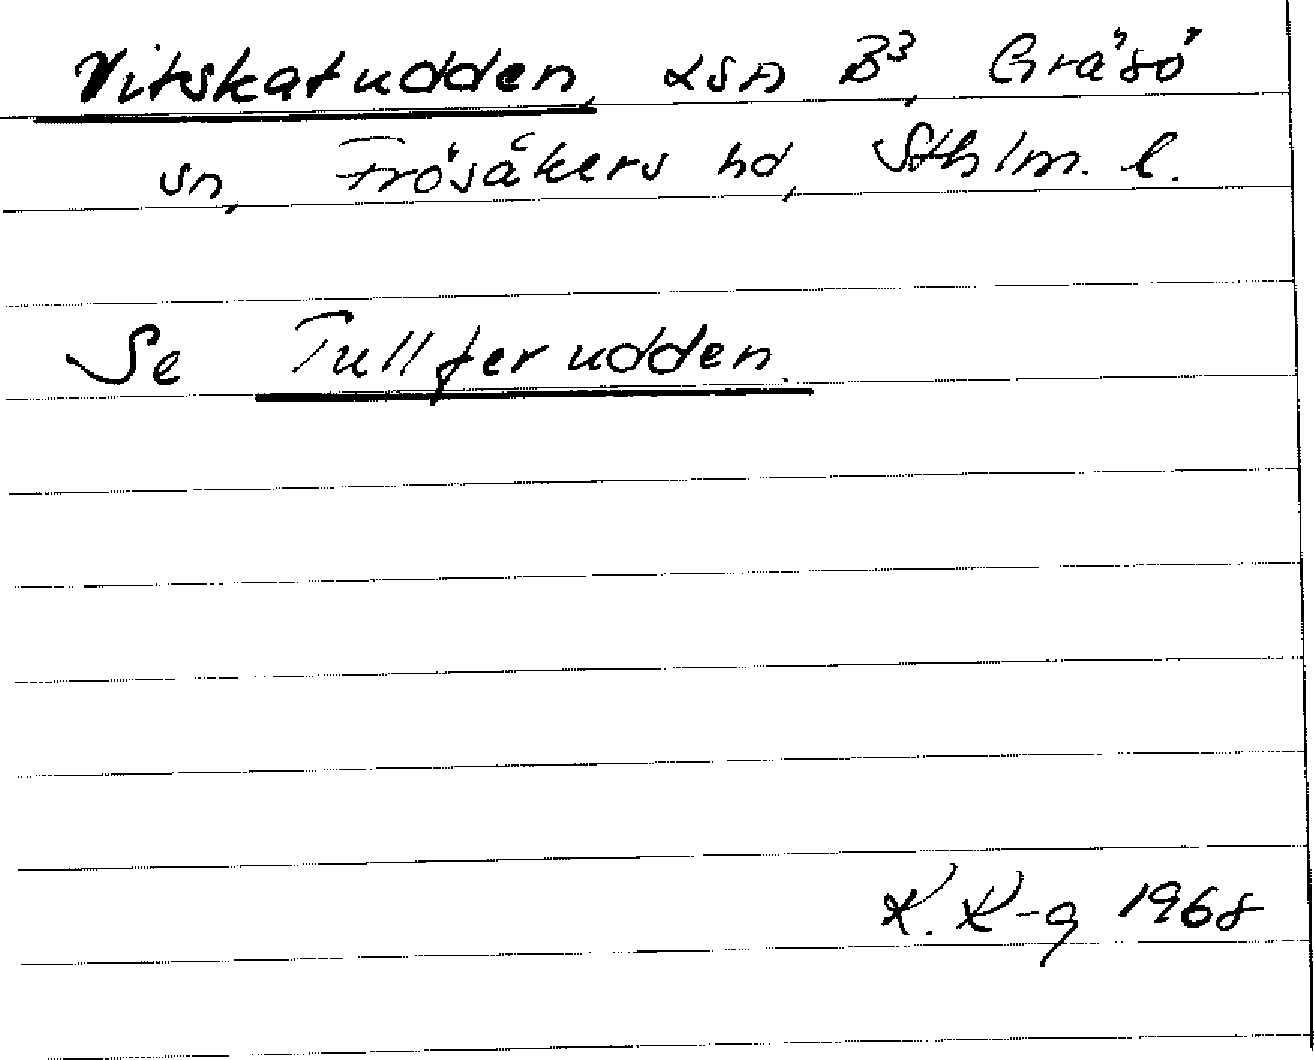 Vitskatudden, lsn B³, Gräsö
sn, Frösåkers hd, Sthlm. l.
Se Tullferudden.
K. K-g 1968